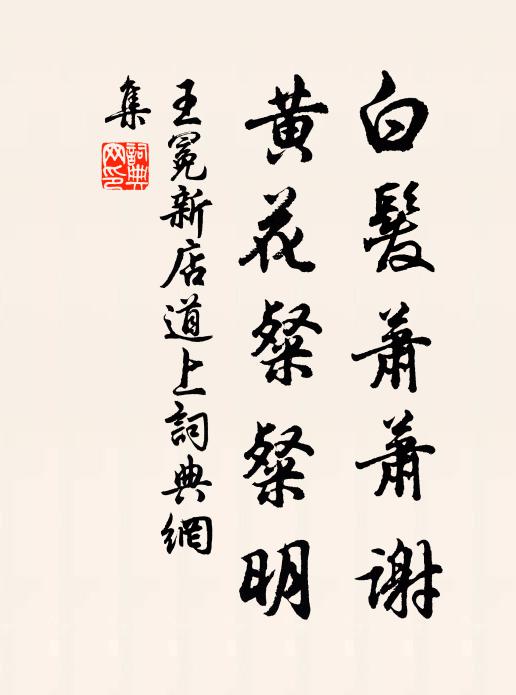 白髮蕭蕭謝
黃花粲粲明
王冕新店道上詞典網
集
詞典網印